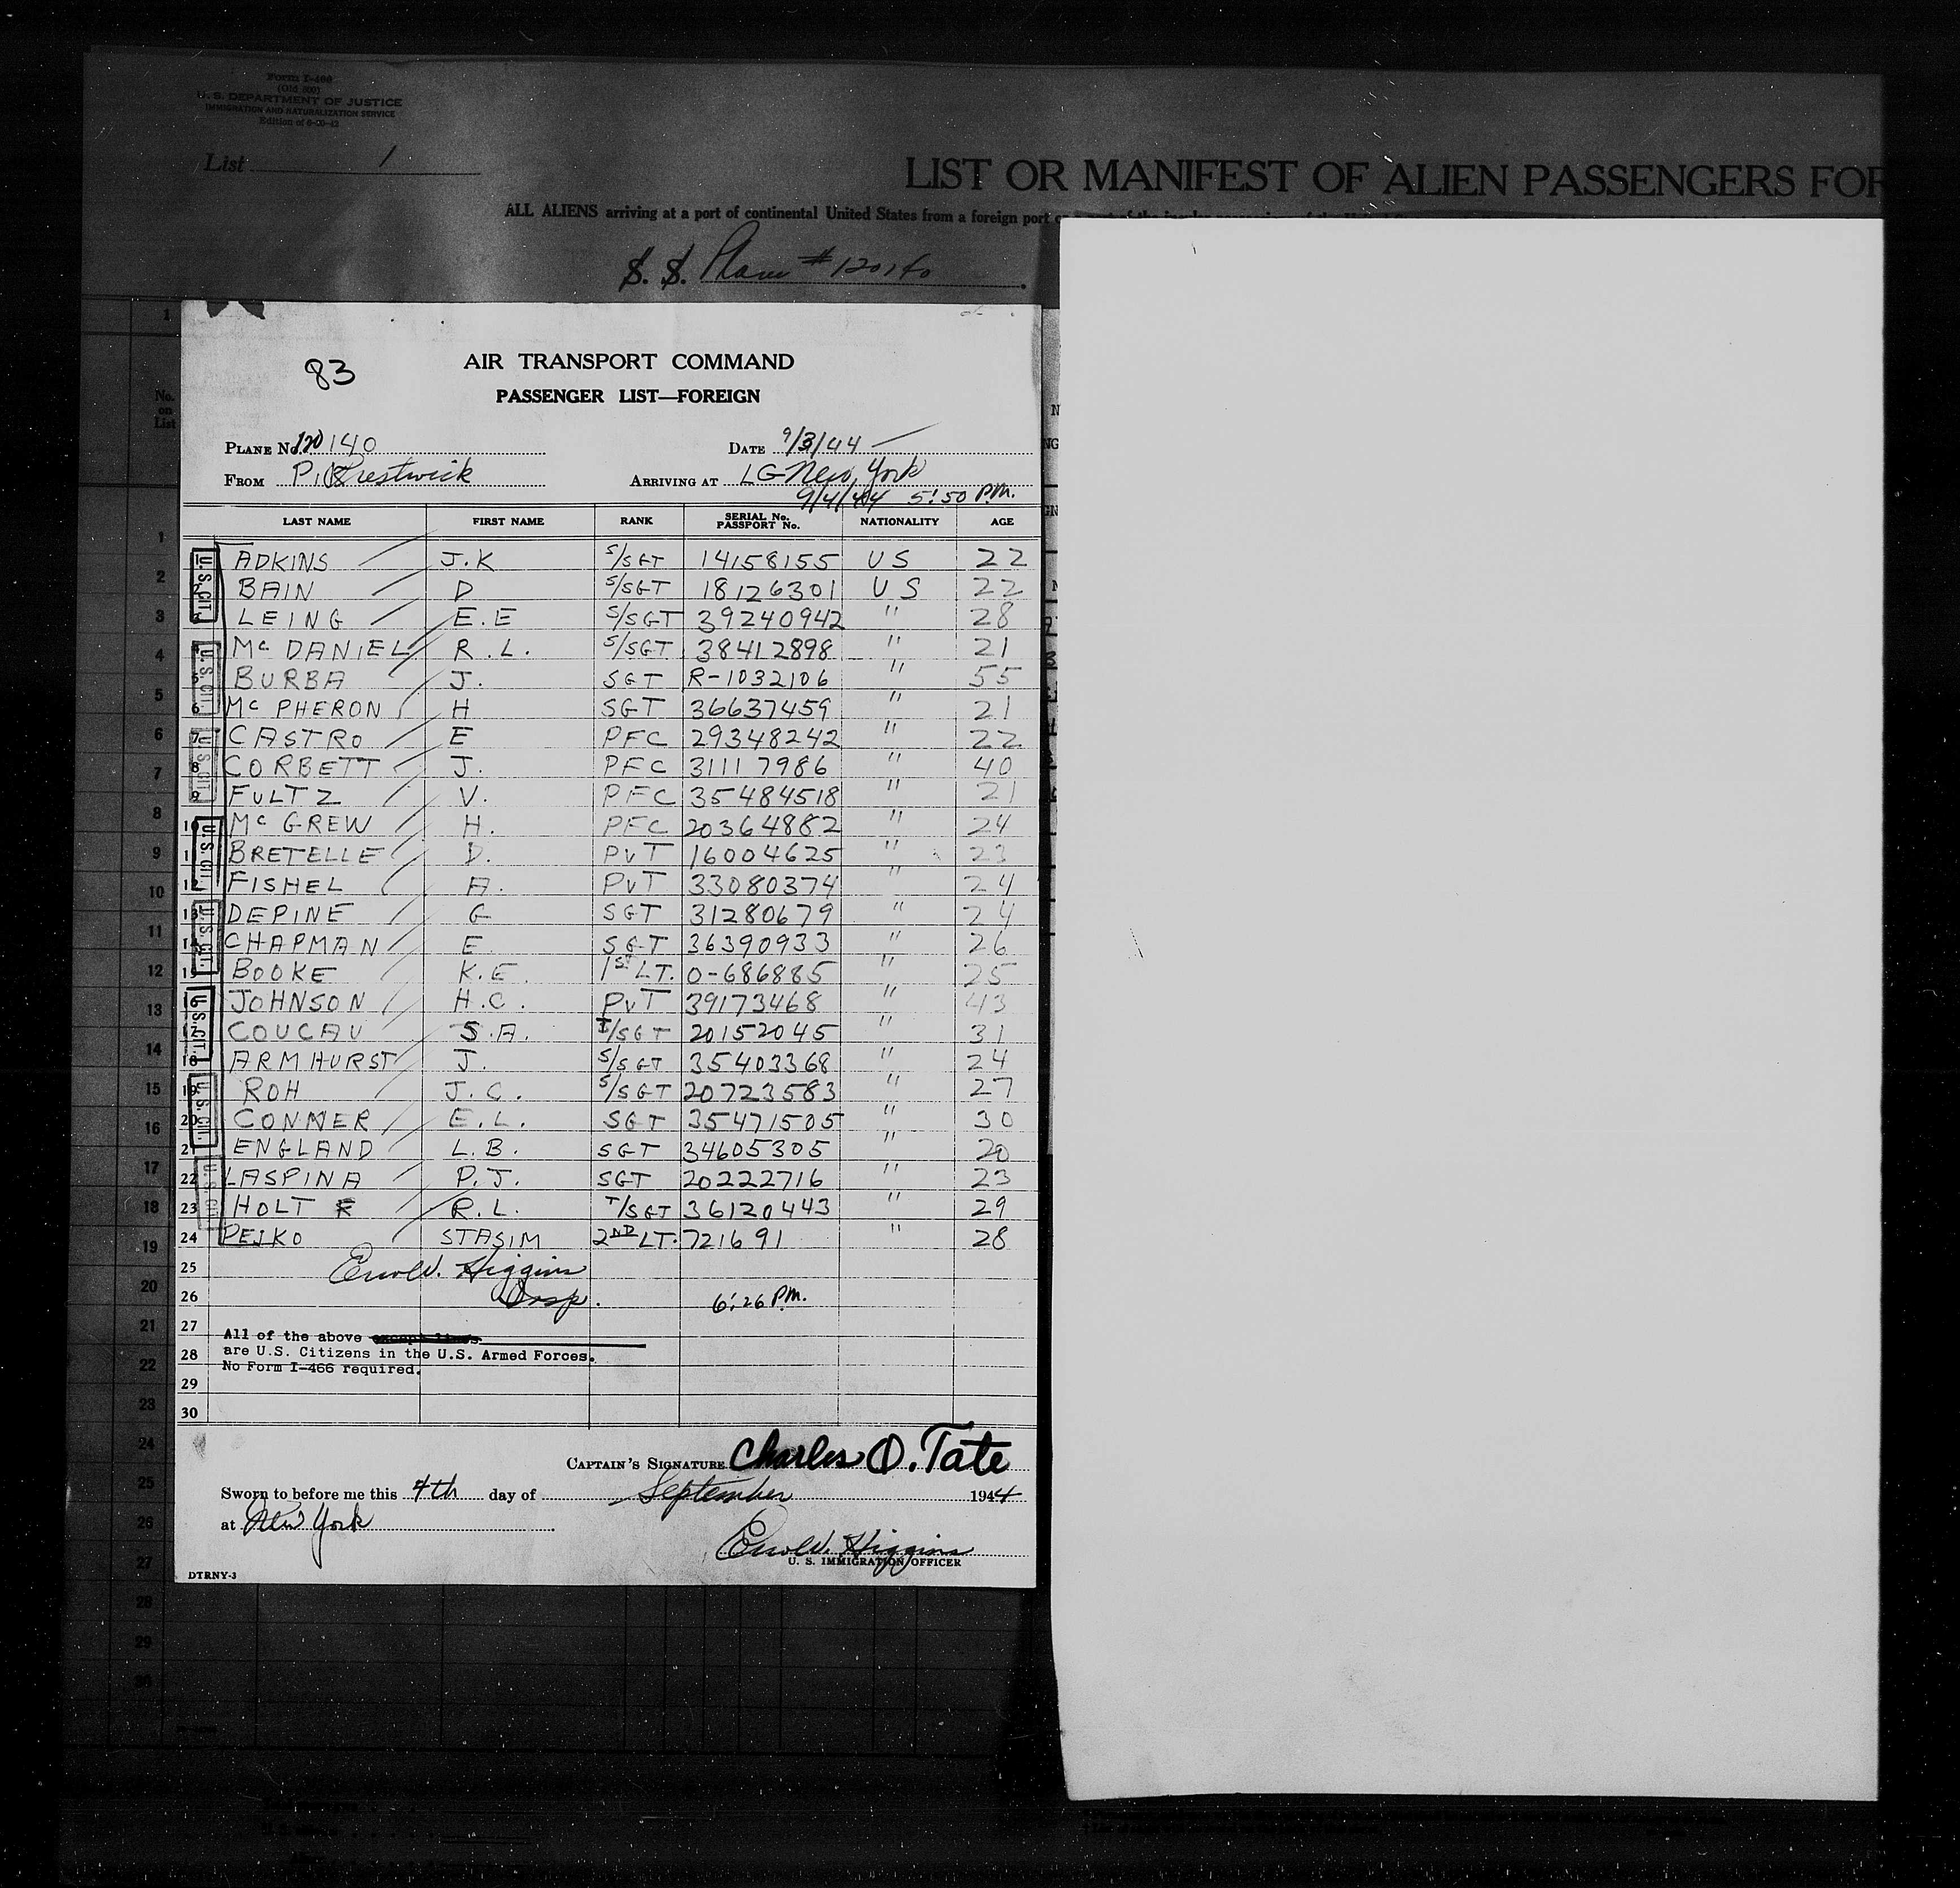 Form I-466
(Old 500)
U. S. DEPARTMENT OF JUSTICE
IMMIGRATION AND NATURALIZATION SERVICE
Edition of 6-20-42
List 1
LIST OR MANIFEST OF ALIEN PASSENGERS FOR
ALL ALIENS arriving at a port of continental United States from a foreign port or
S. S. Plane #120140
No. on List
83
AIR TRANSPORT COMMAND
PASSENGER LIST—FOREIGN
PLANE No. 120140 DATE 9/3/44
FROM Prestwick ARRIVING AT LG New York
9/4/44 5:50 P.M.
LAST NAME FIRST NAME RANK SERIAL No. PASSPORT No. NATIONALITY AGE
1 ADKINS J.K S/SGT 14158155 US 22
2 BAIN D S/SGT 18126301 US 22
3 LEING E.E S/SGT 39240942 " 28
4 McDANIEL R.L. S/SGT 38412898 " 21
5 BURBA J. SGT R-1032106 " 55
6 McPHERON H SGT 36637459 " 21
7 CASTRO E PFC 29348242 " 22
8 CORBETT J. PFC 31117986 " 40
9 FULTZ V. PFC 35484518 " 21
10 McGREW H. PFC 20364882 " 24
11 BRETELLE D. PVT 16004625 " 23
12 FISHEL A. PVT 33080374 " 24
13 DEPINE G SGT 31280679 " 24
14 CHAPMAN E SGT 36390933 " 26
15 BOOKE K.E. 1ST LT. O-686885 " 25
16 JOHNSON H.C. PVT 39173468 " 43
17 COUCAU S.A. T/SGT 20152045 " 31
18 ARMHURST J. S/SGT 35403368 " 24
19 ROH J.C. S/SGT 20723583 " 27
20 CONNER E.L. SGT 35471505 " 30
21 ENGLAND L.B. SGT 34605305 " 20
22 LASPINA P.J. SGT 20222716 " 23
23 HOLT R.L. T/SGT 36120443 " 29
24 PEJKO STASIM 2ND LT. 721691 " 28
25 Higgins
26 Insp. 6:26 P.M.
27 All of the above except lines
28 are U.S. Citizens in the U.S. Armed Forces.
No Form I-466 required.
29
30
CAPTAIN'S SIGNATURE Charles O. Tate
Sworn to before me this 4th day of September 1944
at New York
Higgins
U. S. IMMIGRATION OFFICER
DTRNY-3